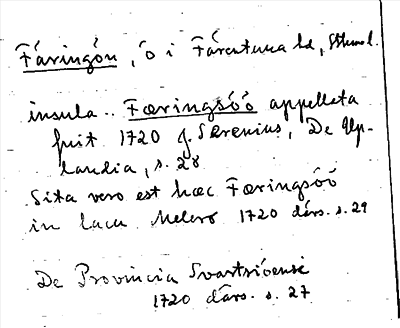 Färingön, ö i Färentuna hd, Sthms l.
insula .. Færingsöö appellata
fuit 1720 J. Serenius, De Up-
landia, s. 28
Sita vero est hæc Færingsöö
in lacu Melero 1720 därs. s. 29
De Provincia Svartsiöensi
1720 därs. s. 27